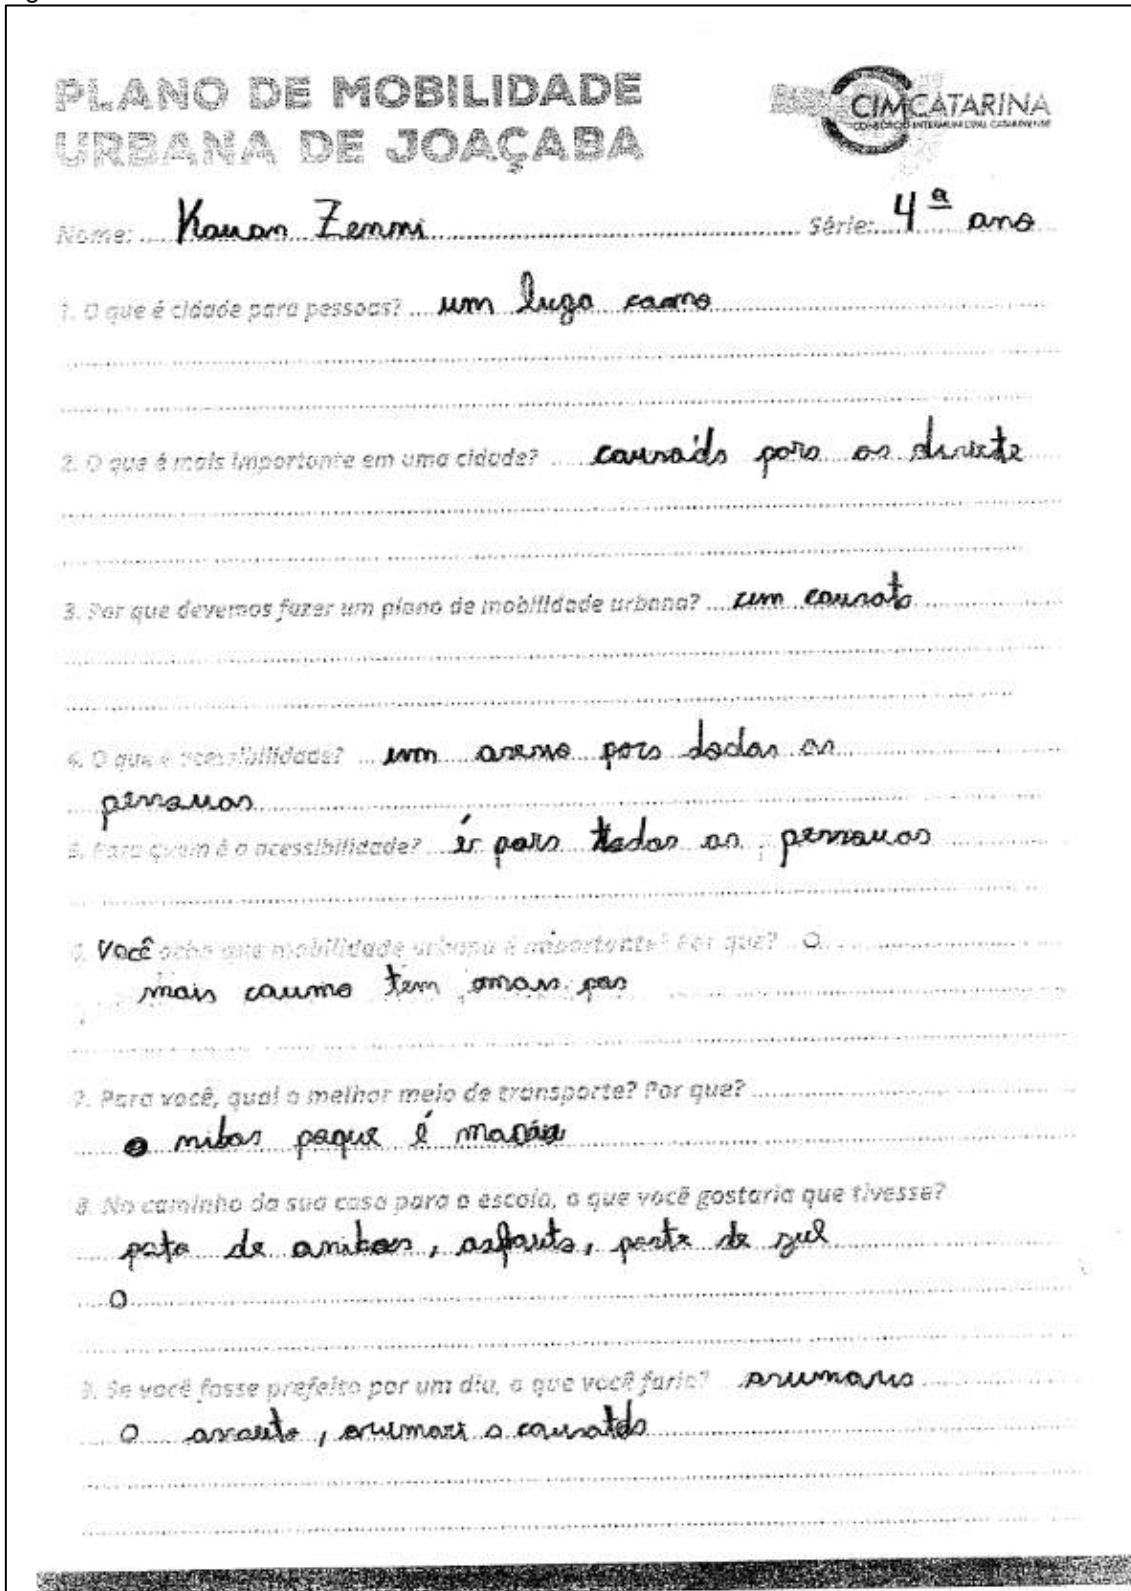 PLANO DE MOBILIDADE
URBANA DE JOAÇABA
CIMCATARINA
CONSÓRCIO INTERMUNICIPAL CATARINENSE
Nome: Kauan Zenni Série: 4ª ano
1. O que é cidade para pessoas? um luga caomo
2. O que é mais importante em uma cidade? causado para os
3. Por que devemos fazer um plano de mobilidade urbana? um
4. O que é acessibilidade? um para dodas as
pessauas
5. Para quem é a acessibilidade? é para todas as pessauas
6. Você acha que mobilidade urbana é importante? Por que? O
mais caumo tem pas
7. Para você, qual o melhor meio de transporte? Por que?
o nibas poque é
8. No caminho da sua casa para a escola, o que você gostaria que tivesse?
pota de anibaes, asfauto, poste de
O
9. Se você fosse prefeito por um dia, o que você faria? arumaria
O